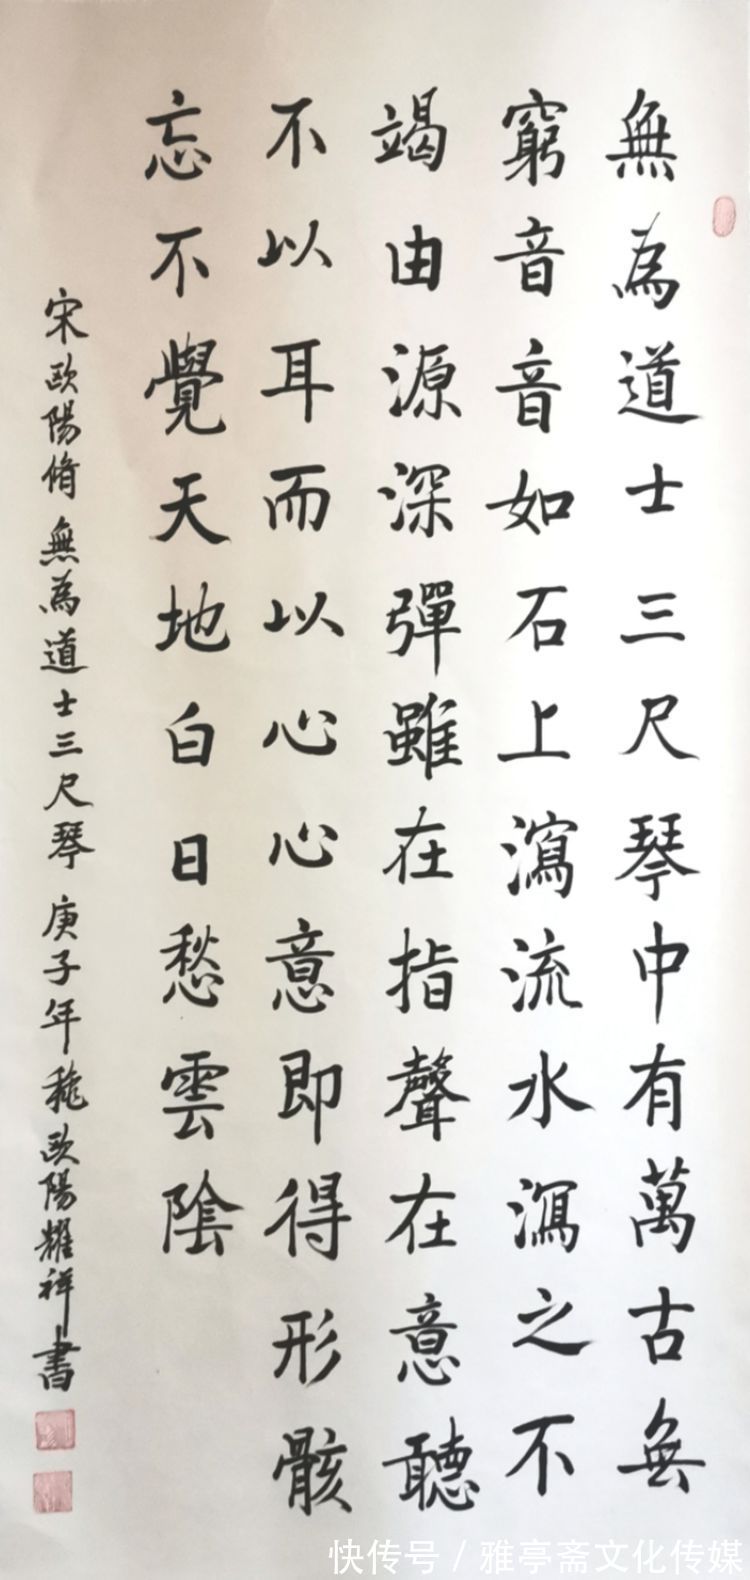 無為道士三尺琴中有萬古無
窮音音如石上瀉流水瀉之不
竭由源深彈雖在指聲在意聽
不以耳而以心心意即得形骸
忘不覺天地白日愁雲陰
宋歐陽脩無為道士三尺琴庚子年穐歐陽耀祥書
快传号/雅亭斋文化传媒